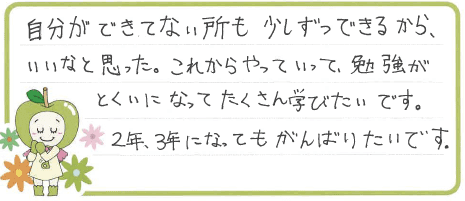 自分ができてない所も少しずつできるから、
いいなと思った。これからやっていって、勉強が
とくいになってたくさん学びたいです。
2年、3年になってもがんばりたいです。